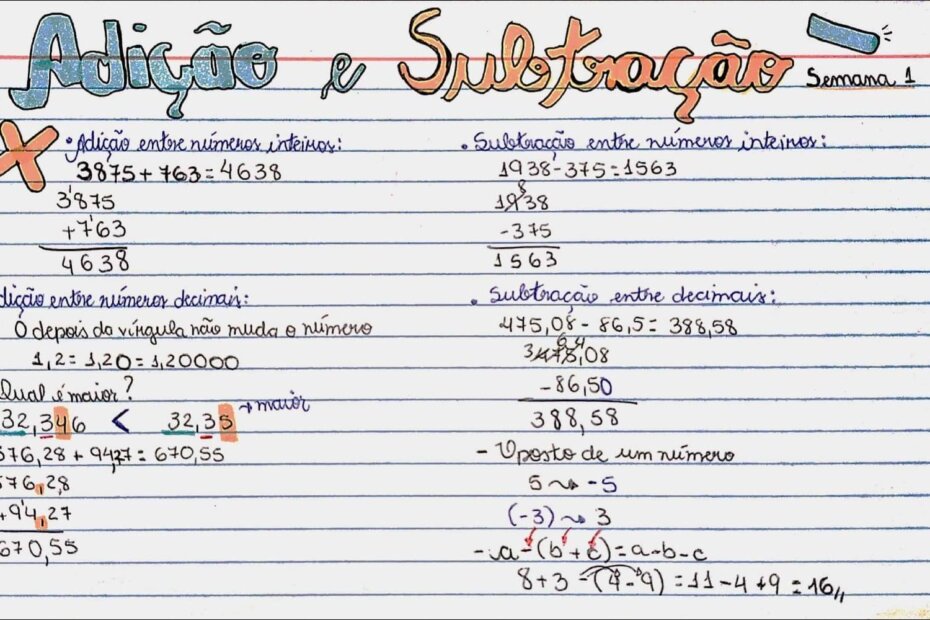 Adição e Subtração
Semana 1
• Adição entre números inteiros:
3875 + 763 = 4638
3875
+763
4638
dição entre números decimais:
0 depois da vírgula não muda o número
1,2 = 1,20 = 1,20000
Qual é maior?
32,346 < 32,35 → maior
576,28 + 94,27 = 670,55
576,28
+94,27
670,55
• Subtração entre números inteiros:
1938 - 375 = 1563
8
1938
-375
1563
• Subtração entre decimais:
475,08 - 86,5 = 388,58
475,08
-86,50
388,58
- Oposto de um número
5 ⤳ -5
(-3) ⤳ 3
- a - (b + c) = a - b - c
8 + 3 - (4 - 9) = 11 - 4 + 9 = 16,,